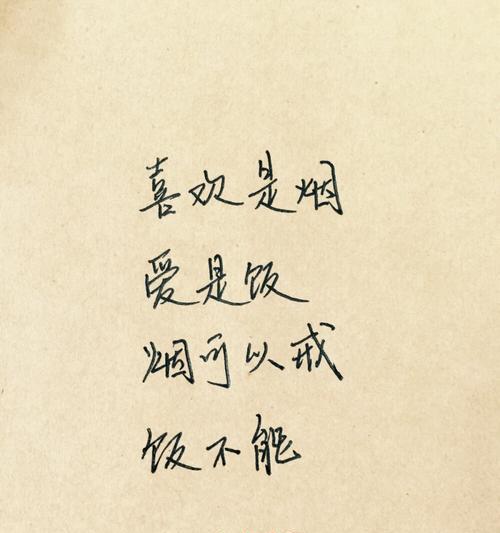 喜欢是烟
爱是饭
烟可以戒
饭不能